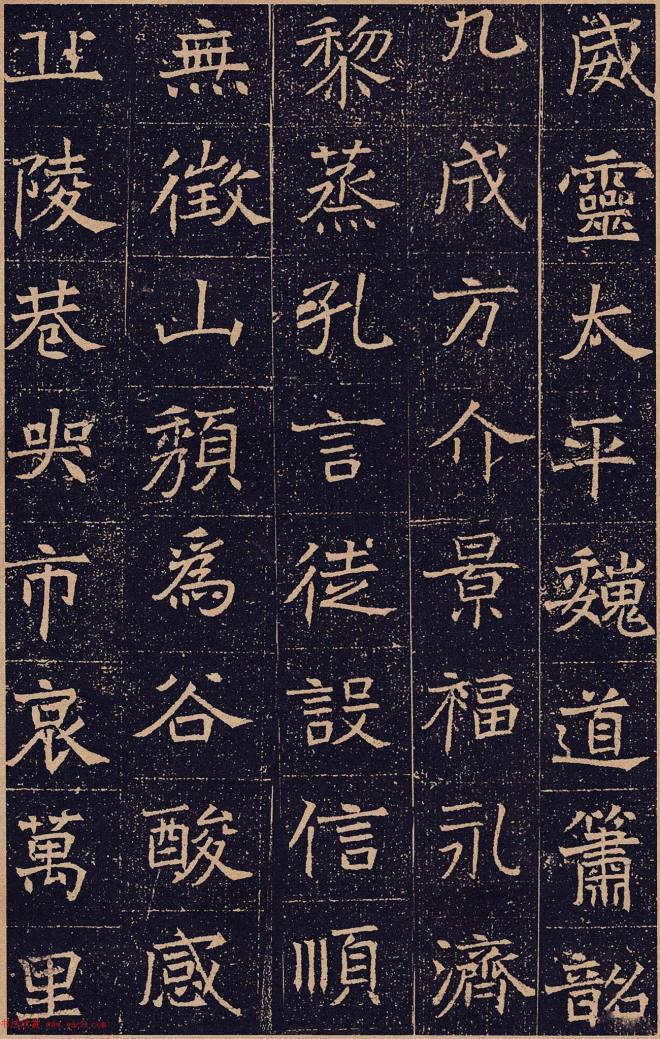 威靈太平魏道簫韶
九成方介景福永濟
黎蒸孔言徒設信順
無徵山頹爲谷酸感
丠陵巷哭市哀萬里